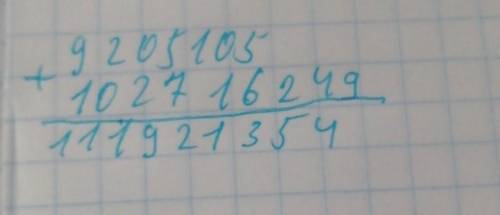 9205105
+
102716249
111921354